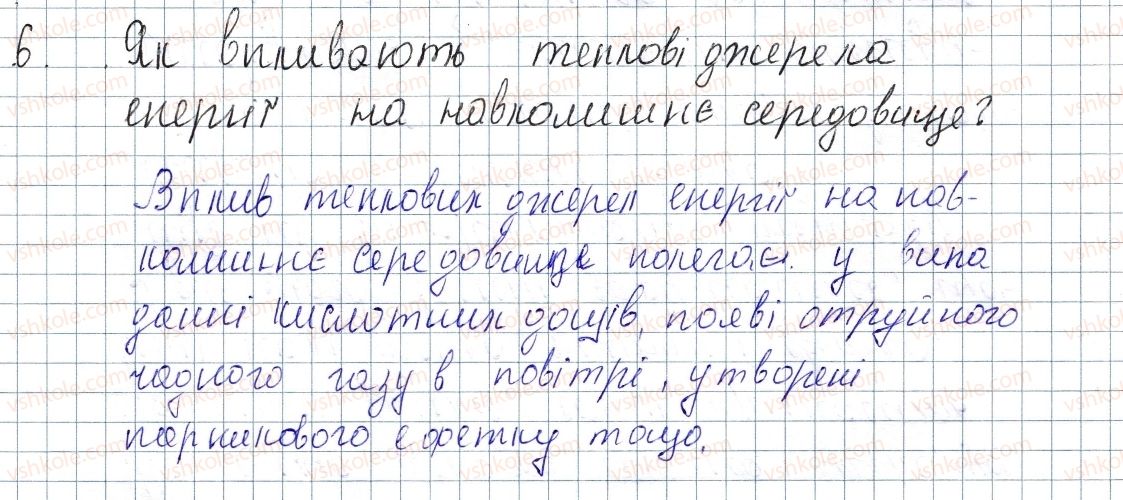 6. Як впливають теплові джерела
енергії на навколишнє середовище?
Вплив теплових джерел енергії на нав-
колишнє середовище полягає у випа
данні кислотних дощів, появі отруйного
чадного газу в повітрі, утворені
парникового ефекту тощо.